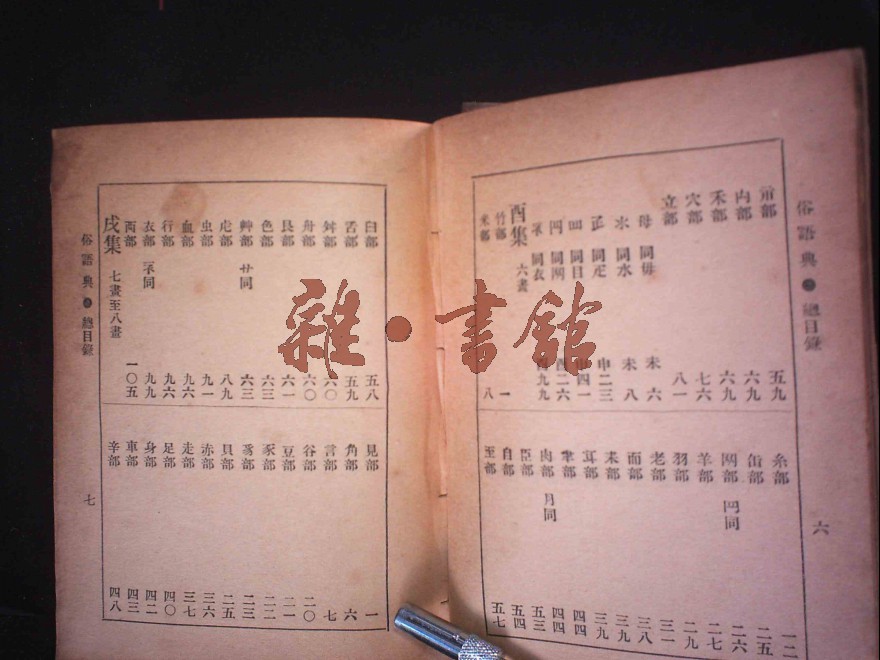 俗語典 總目錄 六
示部 五九
禸部 六九
禾部 六九
穴部 七六
立部 八一
母 同毋 未 六
氺 同水 未 八
同疋 申二三
罒 同目 申四一
同网 二六
同衣 九九
酉集 六畫
竹部 一
米部 八
糸部 一二
缶部 二五
网部 同 二六
羊部 二七
羽部 二九
老部 三二
而部 三八
耒部 三九
耳部 三九
聿部 四四
肉部 月同 四四
臣部 五三
自部 五四
至部 五七
臼部 五八
舌部 五九
舛部 六〇
舟部 六〇
艮部 六一
色部 六三
艸部 艹同 六三
虍部 八九
虫部 九一
血部 九六
行部 九六
衣部 衤同 九九
襾部 一〇五
戌集 七畫至八畫
見部 一
角部 六
言部 七
谷部 二〇
豆部 二一
豕部 二二
豸部 二三
貝部 二五
赤部 三六
走部 三七
足部 四〇
身部 四二
車部 四三
辛部 四八
俗語典 總目錄 七
雜·書館